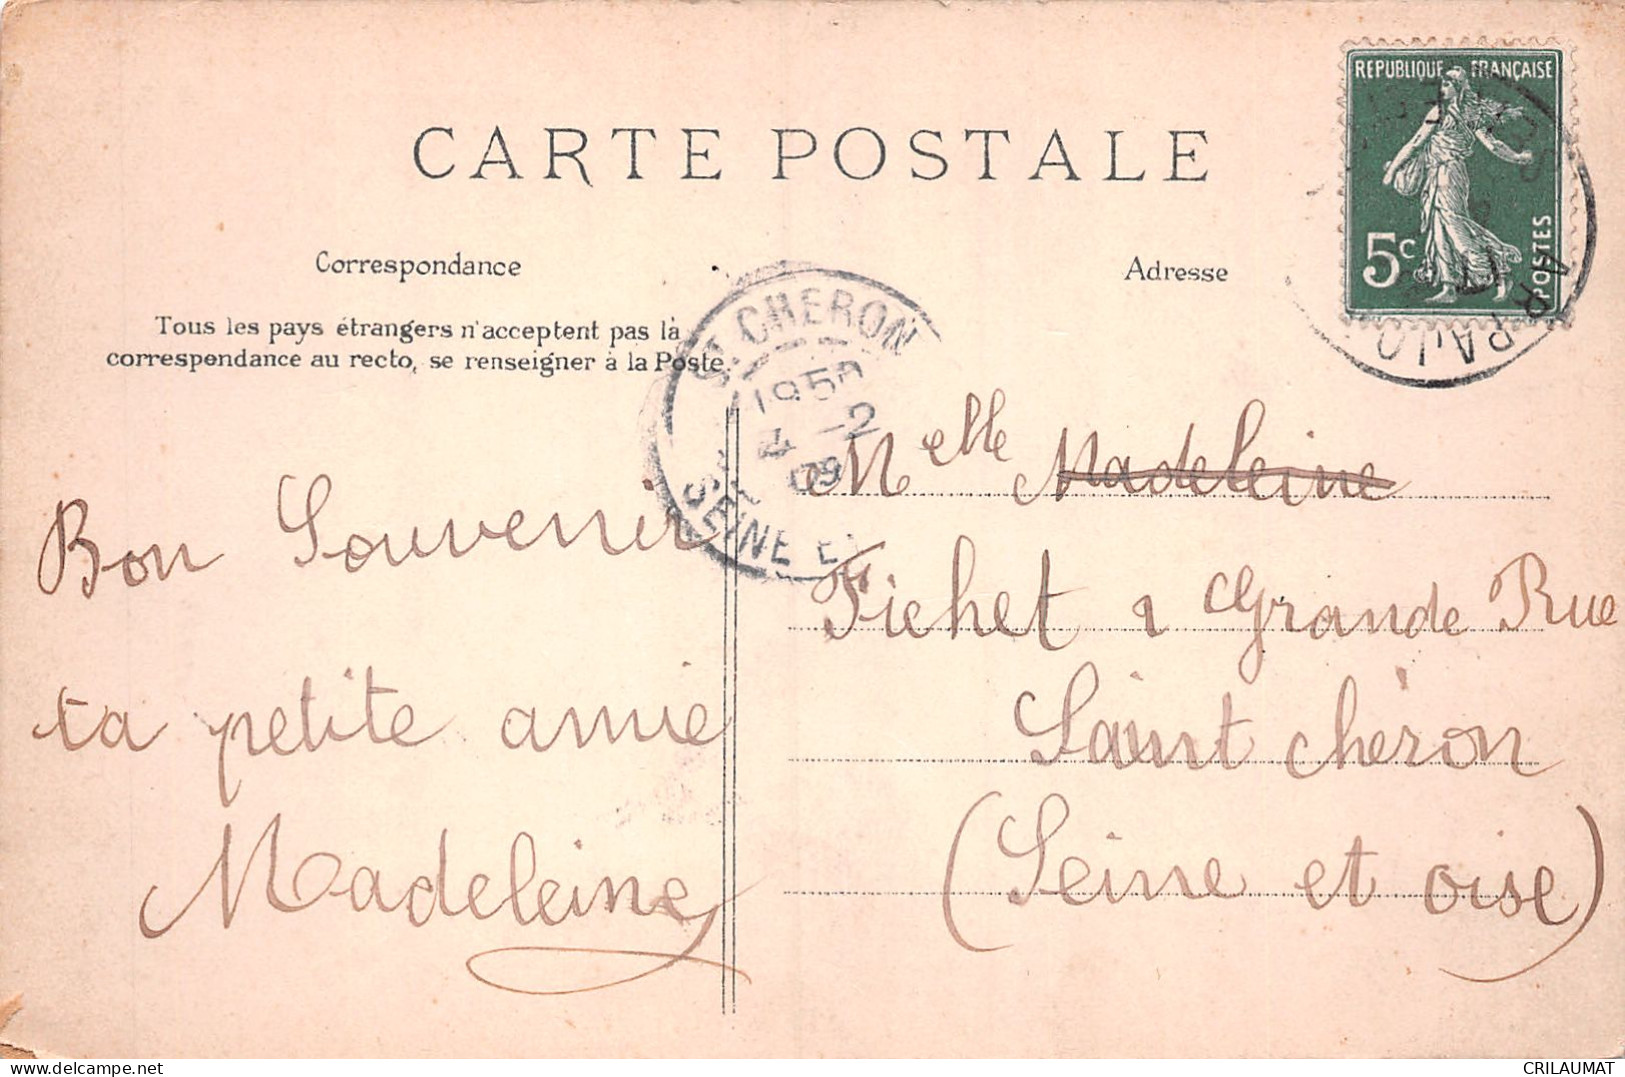 REPUBLIQUE FRANÇAISE
5c
POSTES
ARPAJO
CARTE POSTALE
Correspondance
Adresse
Tous les pays étrangers n'acceptent pas la
correspondance au recto, se renseigner à la Poste.
St CHERON
4 -2
09
SEINE ET
Bon Souvenir
ta petite amie
Madeleine
Melle Madeleine
Fichet 1 Grande Rue
Saint Chèron
(Seine et oise)
CRILAUMAT